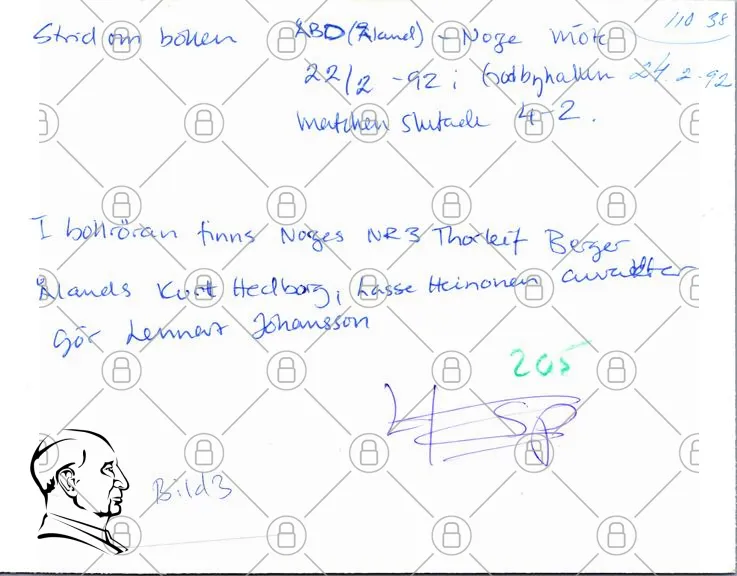 Strid om bollen ÅBD (Åland) - Noge möte 110 38
22/2 -92 i Godbyhallen 24 2-92
matchen slutade 4-2.
I bollröran finns Norges NR3 Thorleif Berger
Ålands Kurt Hedborg, Lasse Heinonen avvaktar
gör Lennart Johansson
205
Bild 3